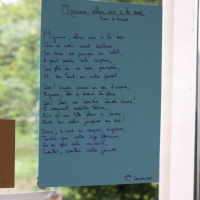 Mignonne, allons voir si la rose
Pierre de Ronsard
Mignonne, allons voir si la rose
Qui ce matin avait déclose
Sa robe de pourpre au soleil,
A point perdu cette vesprée,
Les plis de sa robe pourprée,
Et son teint au vôtre pareil.
Las! voyez comme en peu d'espace,
Mignonne, elle a dessus la place
Las! las! ses beautés laissé choir!
Ô vraiment marâtre Nature,
Puis qu'une telle fleur ne dure
Que du matin jusques au soir!
Donc, si vous me croyez, mignonne,
Tandis que votre âge fleuronne
En sa plus verte nouveauté,
Cueillez, cueillez votre jeunesse